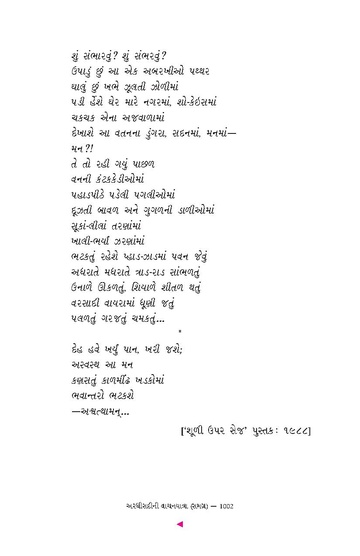 શું સંભારવું? શું સંભરવું?
ઉપાડું છું આ એક અબરખીઓ પથ્થર
ઘાલું છું ખભે ઝૂલતી ઝોળીમાં
પડી હેંશે ઘેર મારે નગરમાં, શો-કેઇસમાં
ચકચક એના અજવાળામાં
દેખાશે આ વતનના ડુંગરા, સદનમાં, મનમાં—
મન?!
તે તો રહી ગયું પાછળ
વનની કંટકકેડીઓમાં
પહાડપીઠે પડેલી પગલીઓમાં
દૂઝતી બાવળ અને ગુગળની ડાળીઓમાં
સૂકાં-લીલાં તરણાંમાં
ખાલી-ભર્યાં ઝરણાંમાં
ભટકતું રહેશે પ્હાડ-ઝાડમાં પવન જેવું
અધરાતે મધરાતે ત્રાડ-રાડ સાંભળતું
ઉનાળે ઊકળતું, શિયાળે શીતળ થતું
વરસાદી વાયરામાં ધૂણી જતું
પલળતું ગરજતું ચમકતું...
*
દેહ હવે ખર્યું પાન, ખરી જશે;
અસ્વસ્થ આ મન
કણસતું કાળમીંઢ ખડકોમાં
ભવાન્તરો ભટકશે
—અશ્વત્થામન્...
['શૂળી ઉપર સેજ' પુસ્તક: ૧૯૮૮]
અરધીસદીની વાચનયાત્રા (સમગ્ર) — 1002